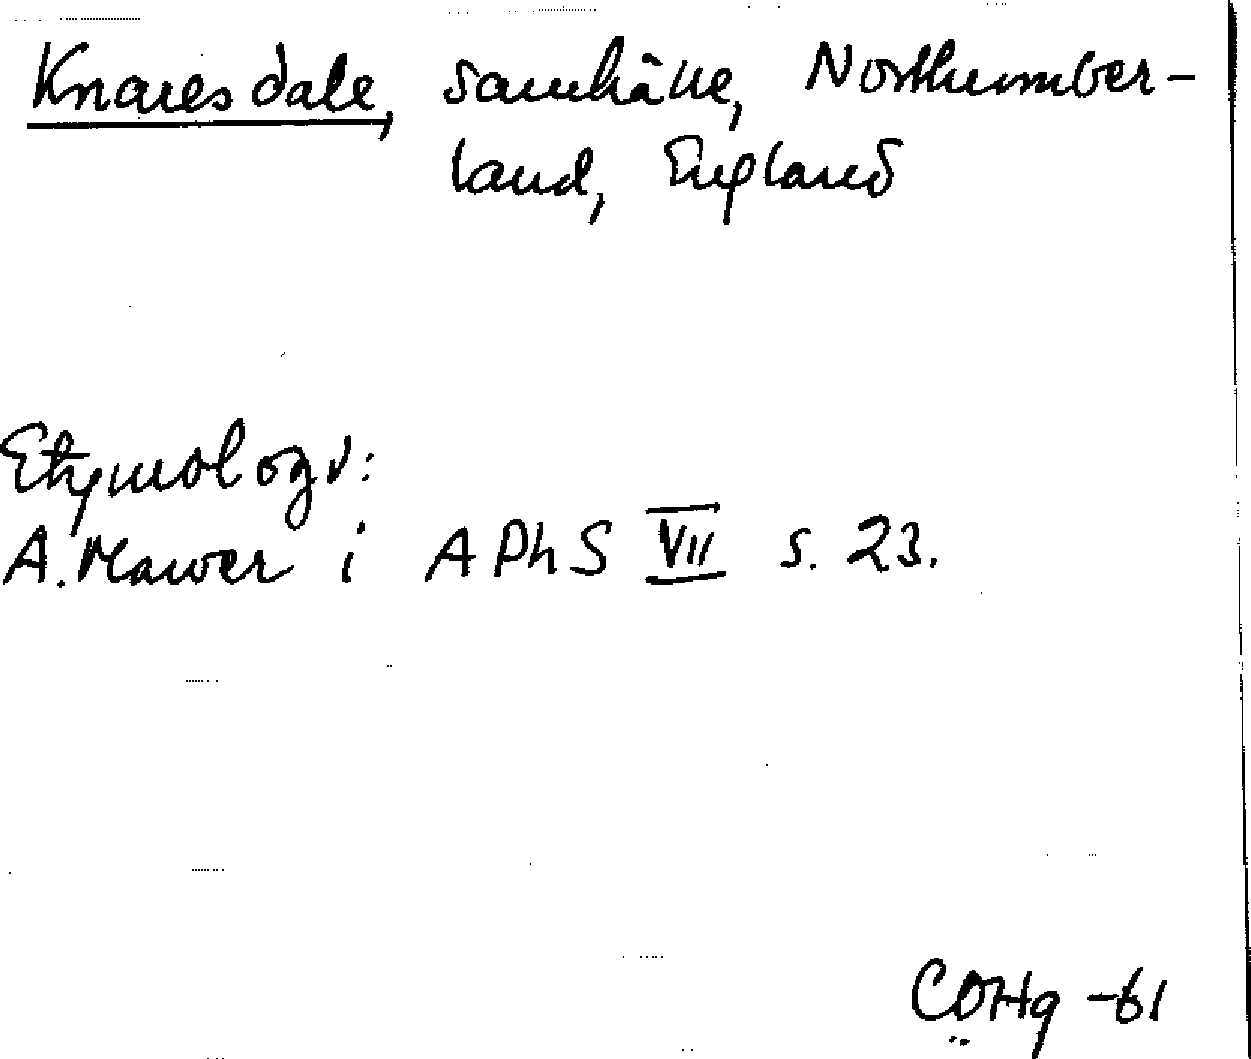 Knaresdale, samhälle, Northumber-
land, England
Etymologi:
A. Mawer i APhS VII s. 23.
COHg -61